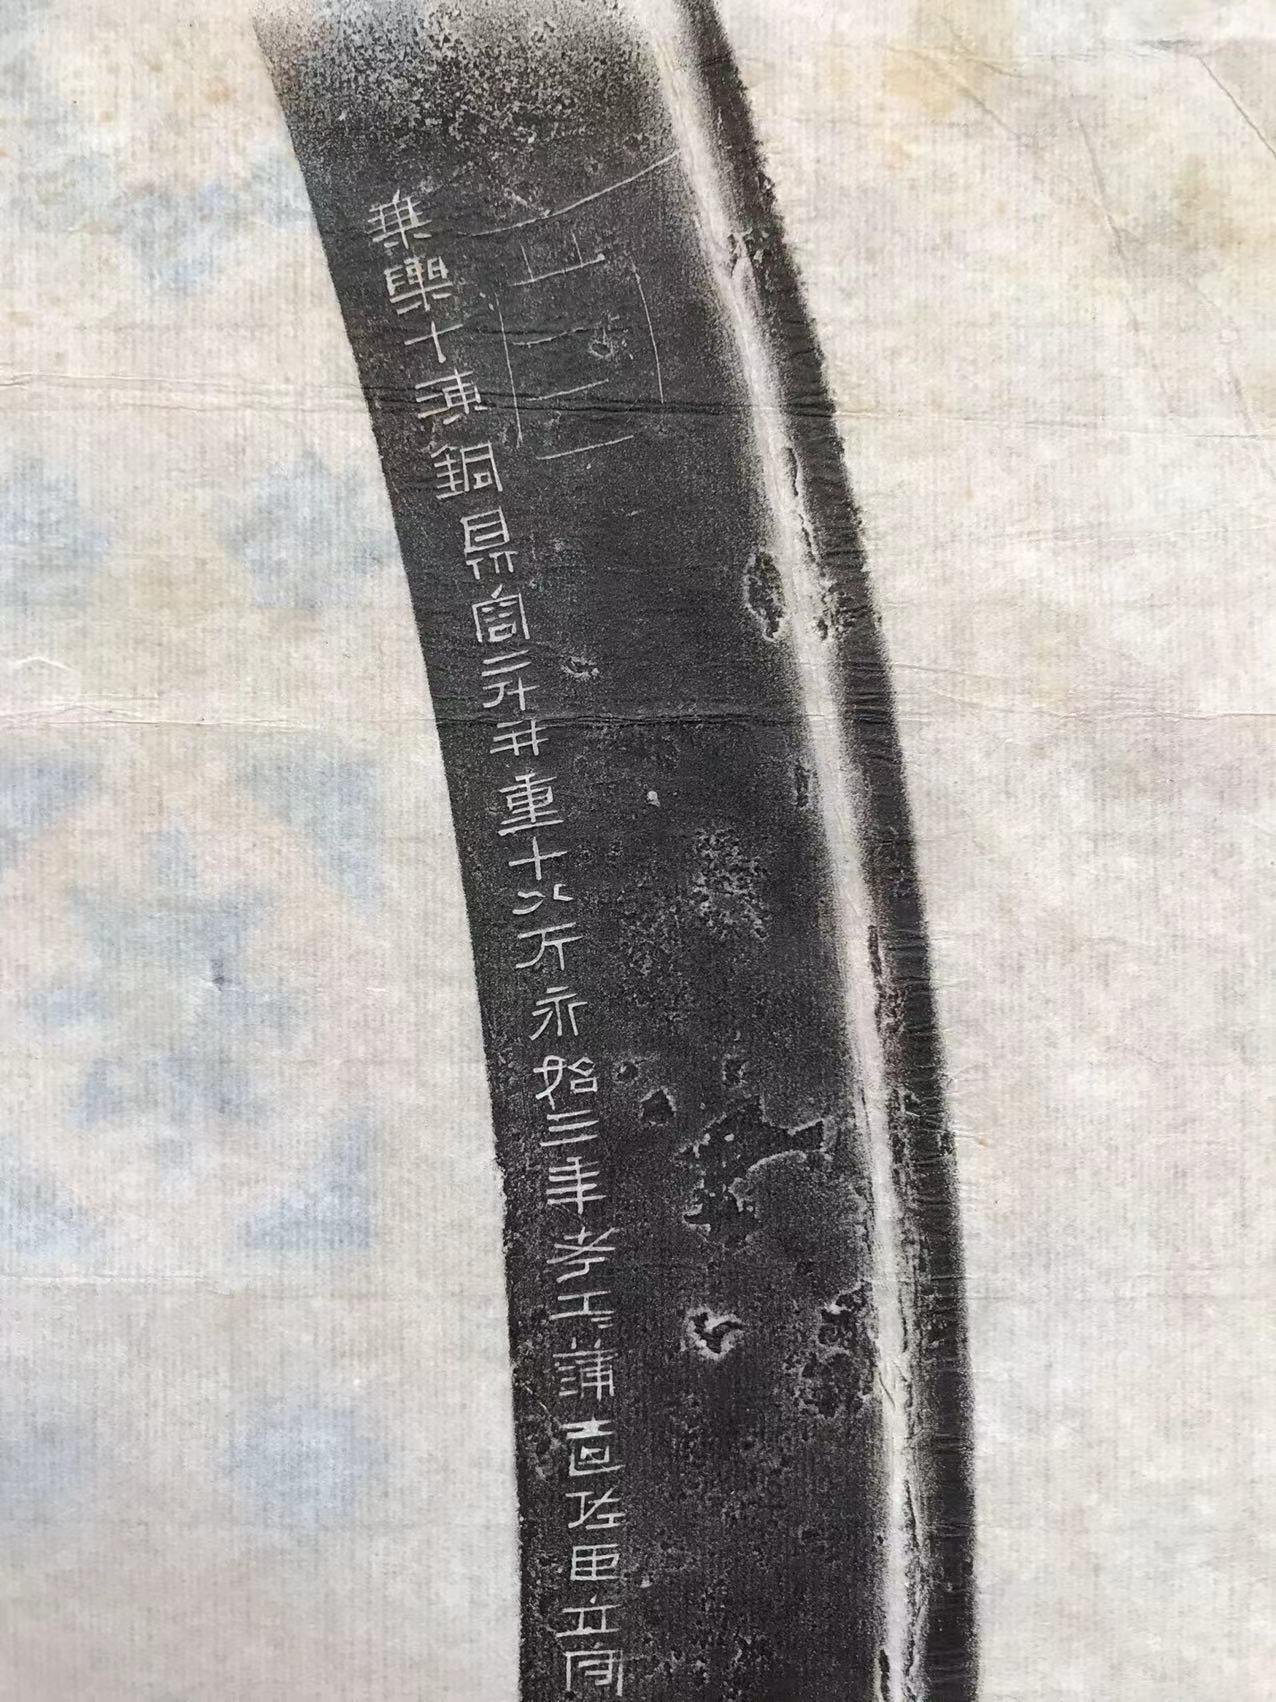 乘輿十湅銅鼎容二斗并重十八斤永始三年考工=蒲造佐臣立守